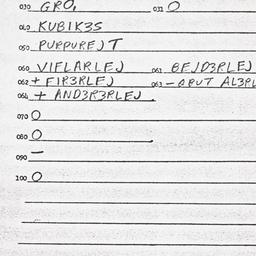 030 GRO, 031 O
040 KUBIK3S
050 PURPUREJT
060 VIFLARLEJ 061 BEJD3RLEJ
062 + FIR3RLEJ 063 - ORUT AL3RL
064 + AND3R3RLEJ
070 O
080 O
090 -
100 O